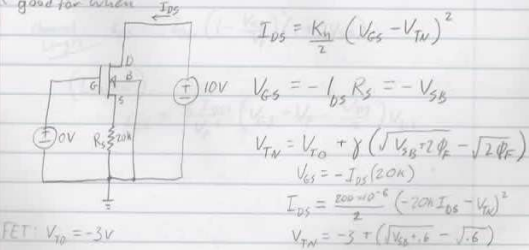 good for when
I_DS
I_DS = K_n/2 (V_GS - V_TN)²
D
G
B
S
10V
V_GS = -I_DS R_S = -V_SB
0V
R_S 20k
V_TN = V_TO + γ(√(V_SB + 2φ_F) - √(2φ_F))
V_GS = -I_DS(20k)
I_DS = 200×10⁻⁶/2 (-20k I_DS - V_TN)²
FET: V_TO = -3V
V_TN = -3 + (√(V_SB + .6) - √.6)